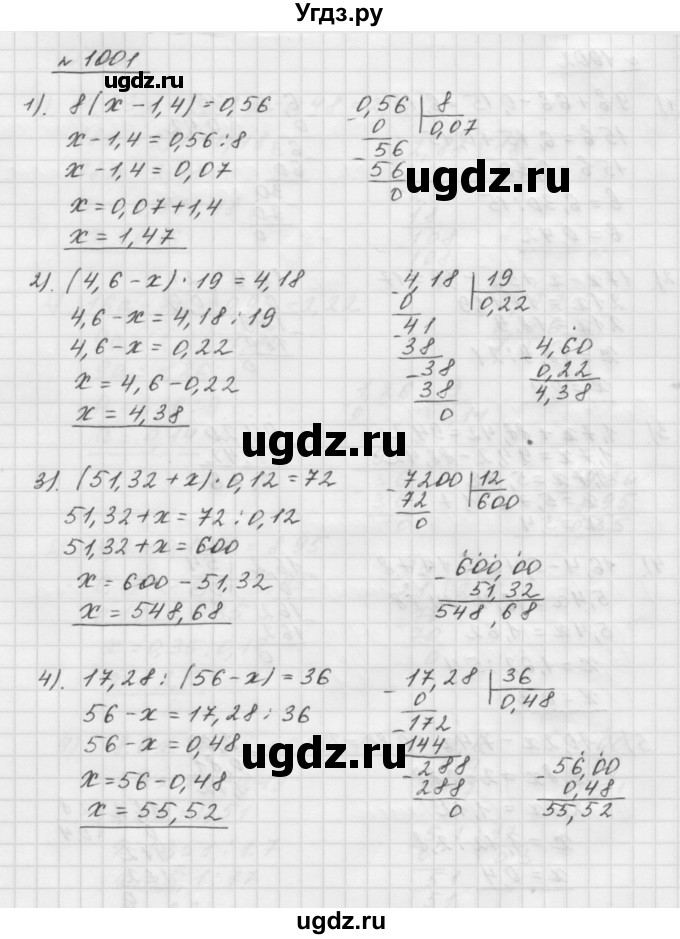 Угдз.ру
№ 1001
ugdz.ru
1). 8(x-1,4)=0,56
x-1,4=0,56:8
x-1,4=0,07
x=0,07+1,4
x=1,47
-0,56 | 8
0 | 0,07
-56
56
0
ugdz.ru
2). (4,6-x)·19=4,18
4,6-x=4,18:19
4,6-x=0,22
x=4,6-0,22
x=4,38
-4,18 | 19
0 | 0,22
-41
38
-38
38
0
-4,60
0,22
4,38
ugdz.ru
3). (51,32+x)·0,12=72
51,32+x=72:0,12
51,32+x=600
x=600-51,32
x=548,68
-7200 | 12
72 | 600
0
-600,00
51,32
548,68
ugdz.ru
4). 17,28:(56-x)=36
56-x=17,28:36
56-x=0,48
x=56-0,48
x=55,52
-17,28 | 36
0 | 0,48
-172
144
-288
288
0
-56,00
0,48
55,52
ugdz.ru
ugdz.ru
ugdz.ru
ugdz.ru